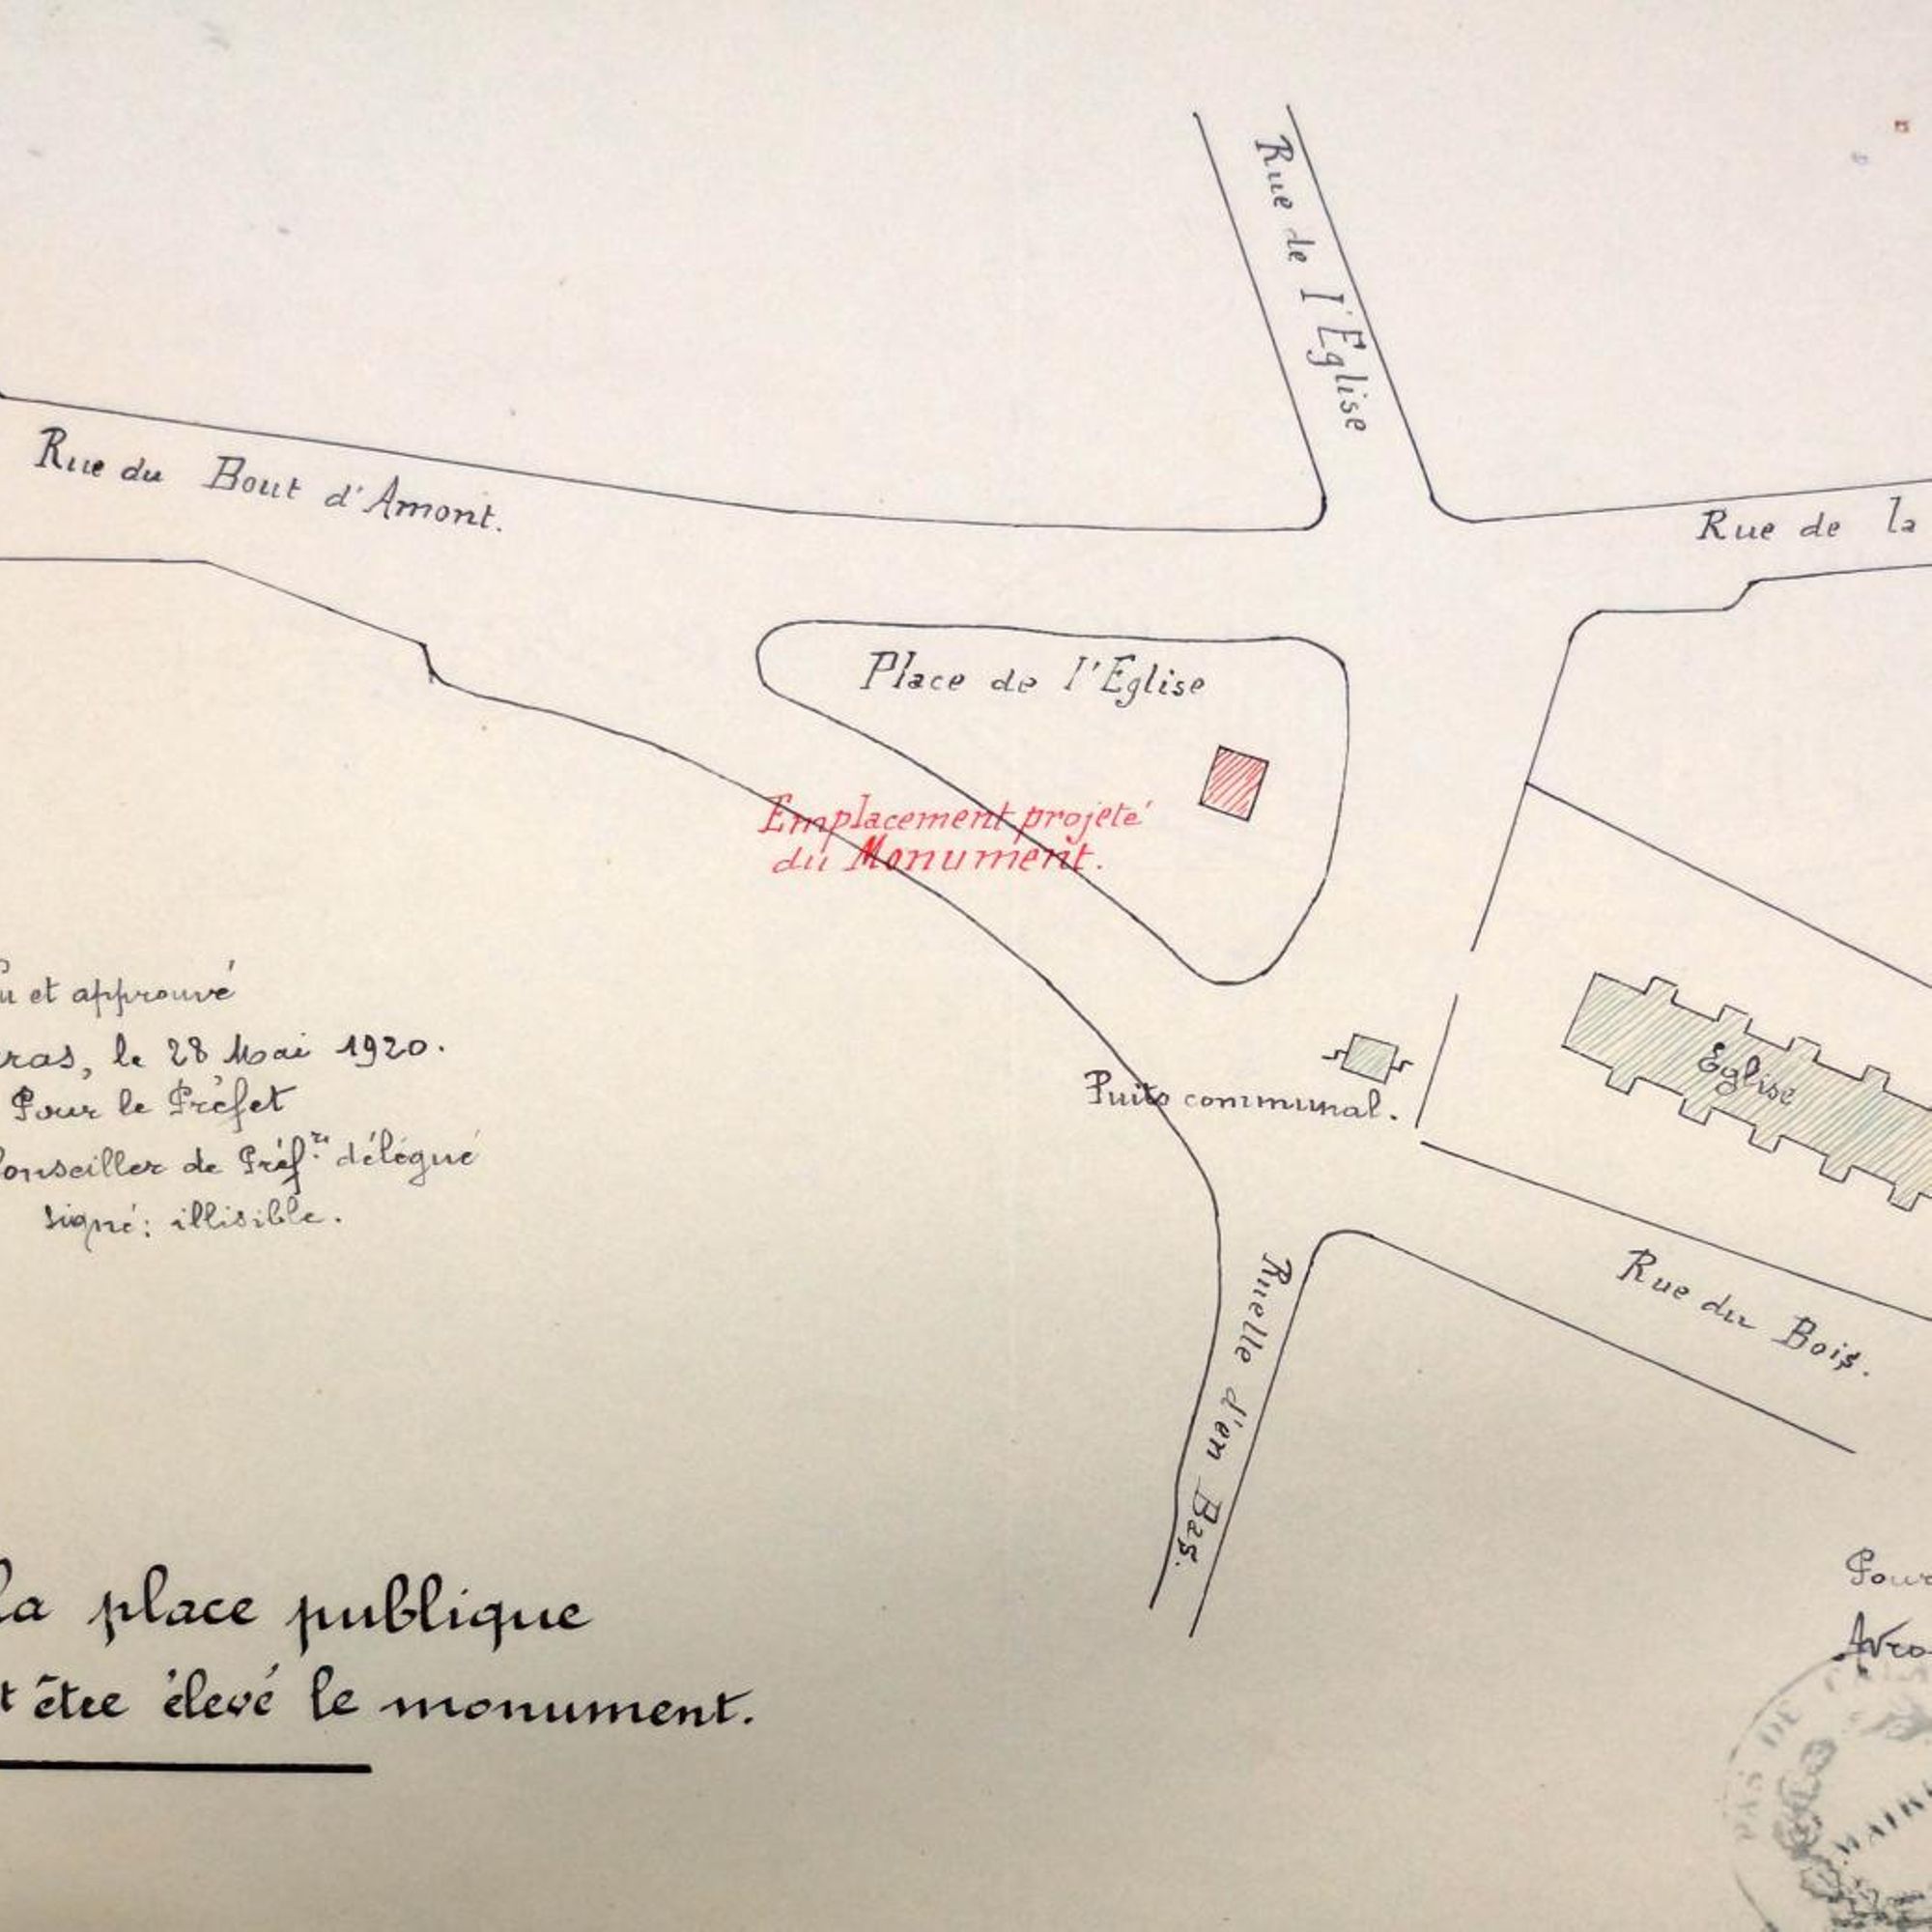 Rue de l'Eglise
Rue du Bout d'Amont.
Rue de la
Place de l'Eglise
Emplacement projeté
du Monument.
u et approuvé
ras, le 28 Mai 1920.
Pour le Préfet
Conseiller de Préf.re délégué
signé: illisible.
Puits communal.
Eglise
Rue du Bois.
Ruelle d'en Bas.
la place publique
t être élevé le monument.
Pour
Avro
PAS DE CALAIS
MAIRIE